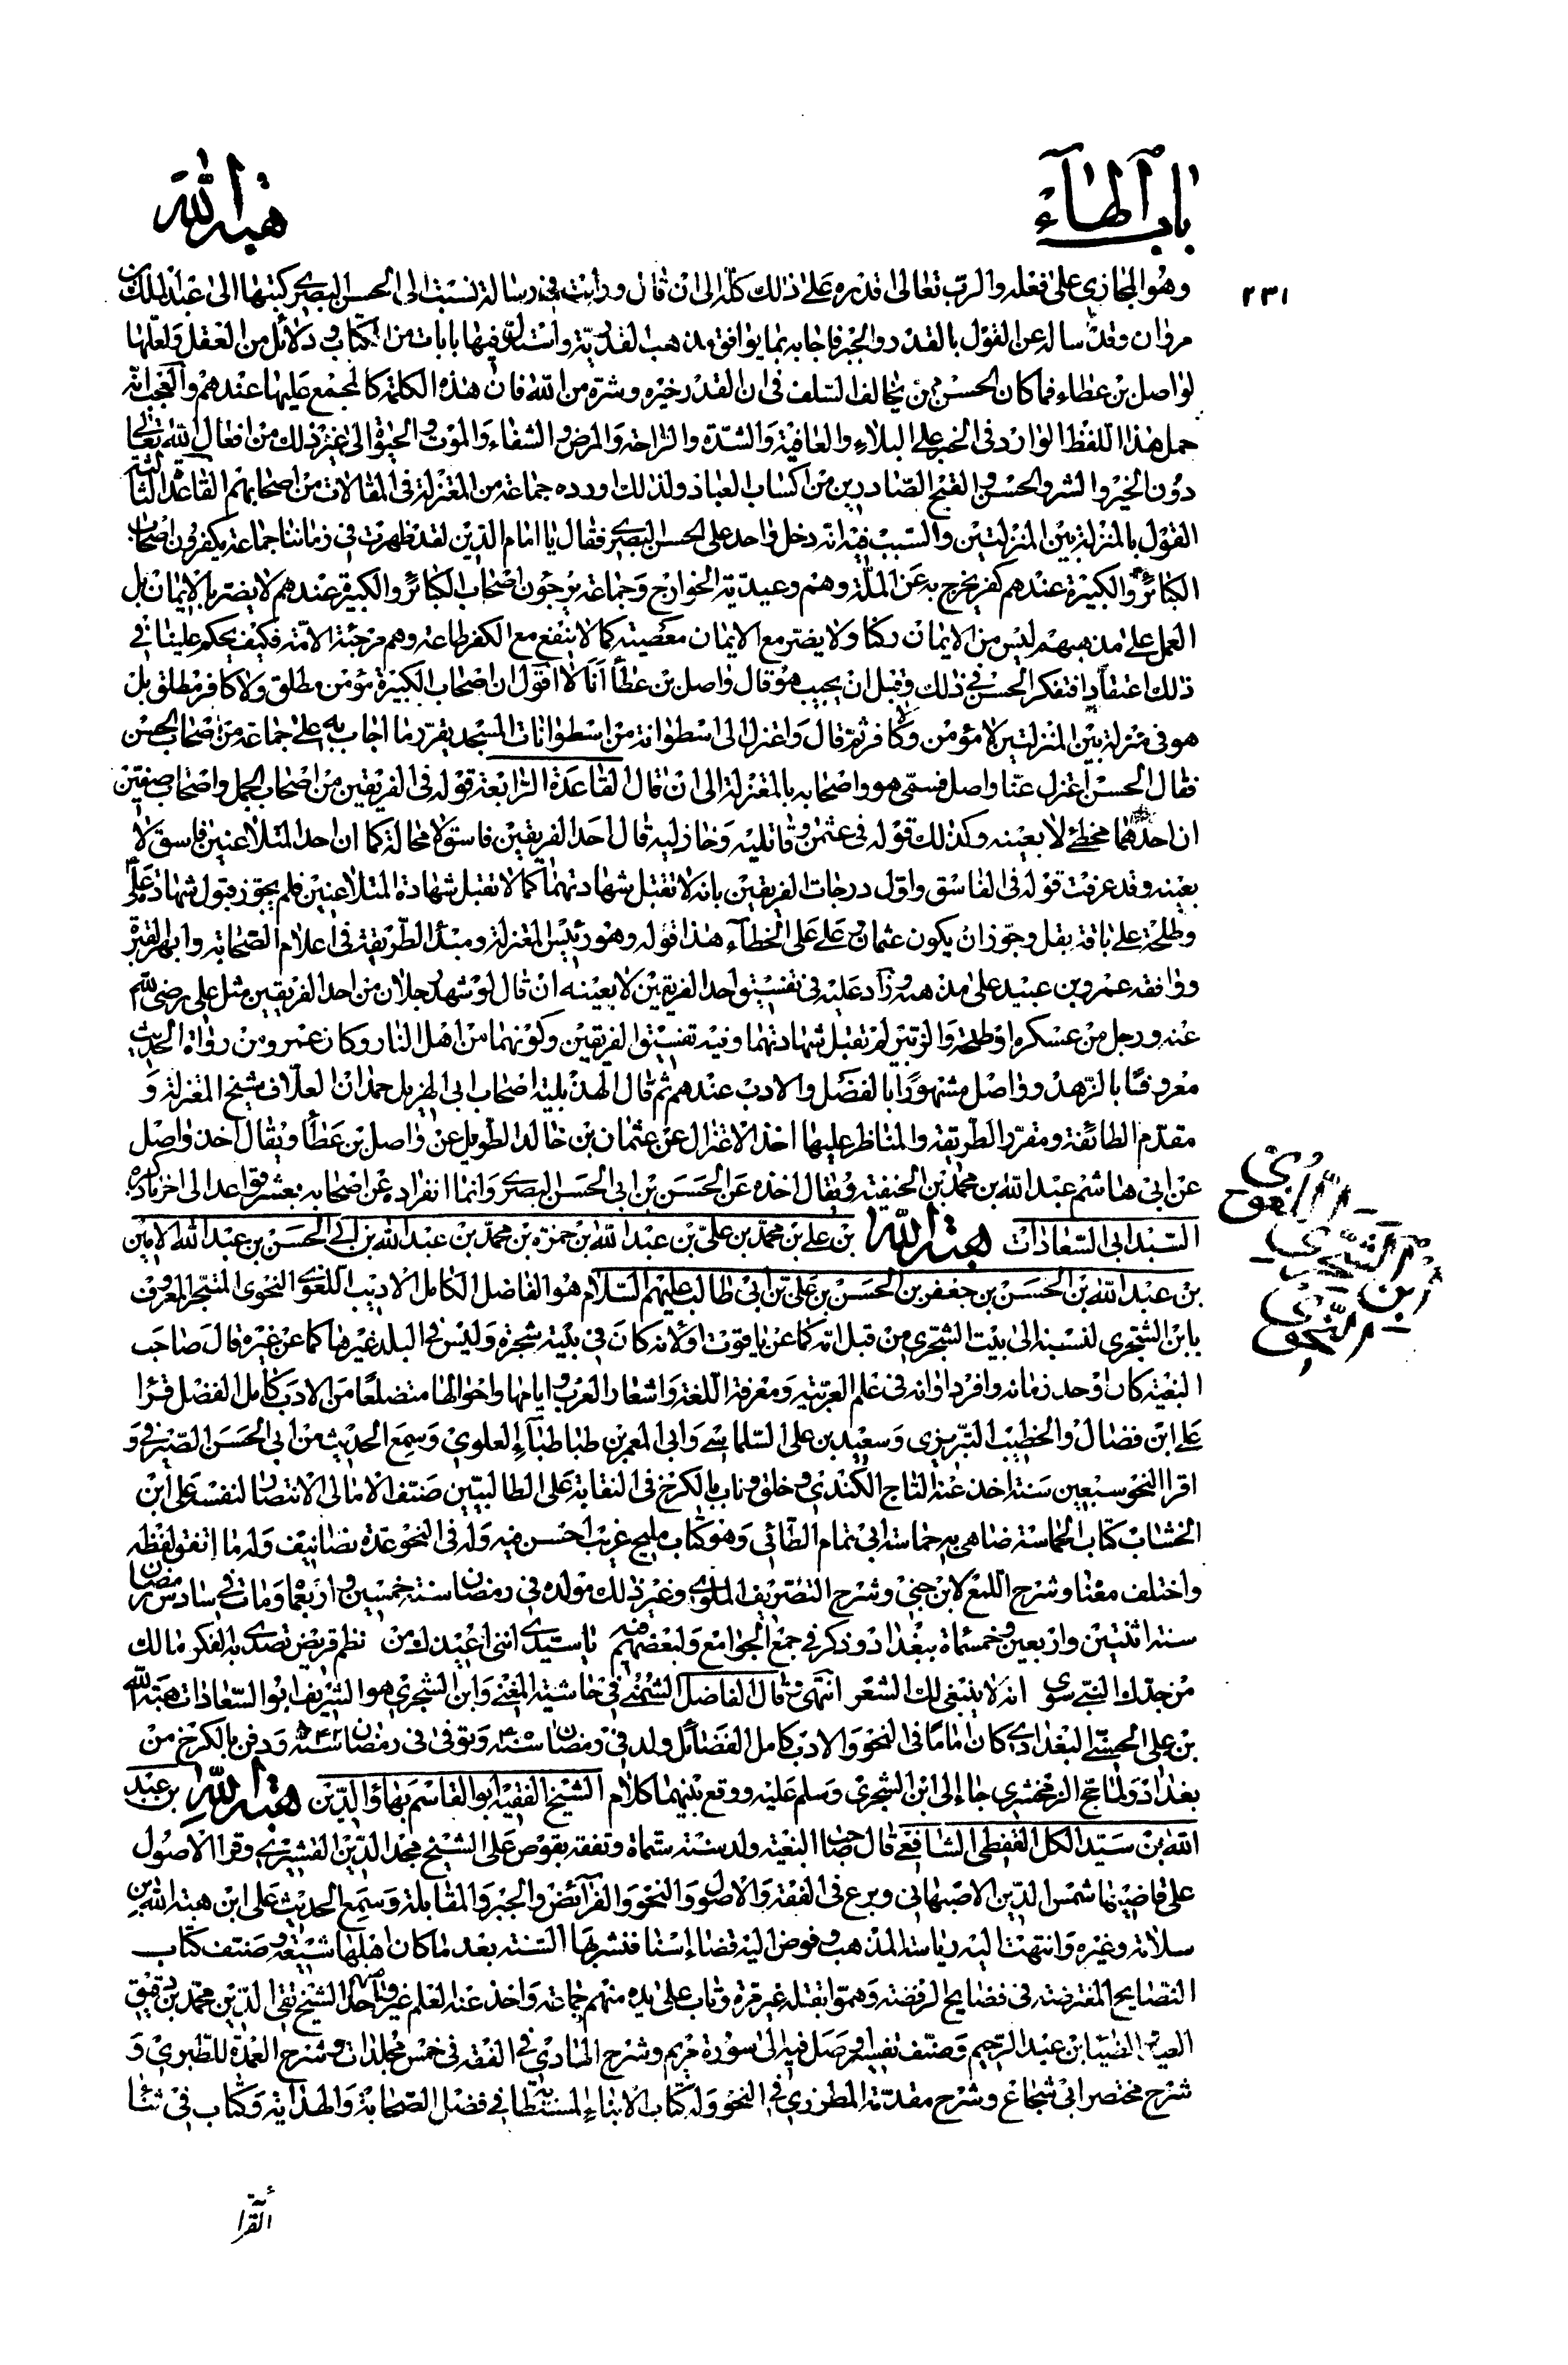 باب الهاء
هبة الله
٢٣١
وهو المجازى على فعله والرب تعالى اقدره على ذلك كله الى ان قال ورايت فى رسالة نسبت الى الحسن البصرى كتبها الى عبد الملك بن
مروان وقد ساله عن القول بالقدر والجبر فاجابه بما يوافق مذهب القدرية واستدل فيها بايات من الكتاب ودلائل من العقل ولعلها
لواصل بن عطاء فما كان الحسن ممن يخالف السلف فى ان القدر خيره وشره من الله فان هذه الكلمة كالمجمع عليها عندهم والعجب انه
حمل هذا اللفظ الوارد فى الخبر على البلاء والعافية والشدة والراحة والمرض والشفاء والموت والحيوة الى غير ذلك من افعال الله تعالى
دون الخير والشر والحسن والقبح الصادرين من اكتساب العباد ولذلك اورده جماعة من المعتزلة فى المقالات من اصحابهم القاعدة الثالثة
القول بالمنزلة بين المنزلتين والسبب فيه انه دخل واحد على الحسن البصرى فقال يا امام الدين لقد ظهرت فى زماننا جماعة يكفرون اصحاب
الكبائر والكبيرة عندهم كفر يخرج به عن الملة وهم وعيدية الخوارج وجماعة يرجئون اصحاب الكبائر والكبيرة عندهم لا يضر بالايمان بل
العمل على مذهبهم ليس من الايمان ركنا ولا يضر مع الايمان معصيته كما لا ينفع مع الكفر طاعة وهم مرجئة الامة فكيف يحكم علينا فى
ذلك اعتقادا فتفكر الحسن فى ذلك وقبل ان يجيب هو قال واصل بن عطا انا لا اقول ان اصحاب الكبيرة مؤمن مطلق ولا كافر مطلق بل
هو فى منزلة بين المنزلتين لا مؤمن ولا كافر ثم قال واعتزل الى اسطوانة من اسطوانات المسجد يقرر ما اجاب به على جماعة من اصحاب الحسن
فقال الحسن اعتزل عنا واصل فسمى هو واصحابه بالمعتزلة الى ان قال القاعدة الرابعة قوله فى الفريقين من اصحاب الجمل واصحاب صفين
ان احدهما مخطئ لا بعينه وكذلك قوله فى عثمن وقاتليه وخاذليه قال احد الفريقين فاسق لا محالة كما ان احد المتلاعنين فاسق لا
بعينه وقد عرفت قوله فى الفاسق واول درجات الفريقين بانه لا تقبل شهادتهما كما لا تقبل شهادة المتلاعنين فلم يجوز قبول شهادة على
وطلحة على باقة بقل وجوز ان يكون عثمان وعلى على الخطاء هذا قوله وهو رئيس المعتزلة ومبدأ الطريقة فى اعلام الصحابة
ووافقه عمرو بن عبيد على مذهبه وزاد عليه فى تفسيق احد الفريقين لا بعينه ان قال لو شهد رجلان من احد الفريقين مثل على رضى الله
عنه ورجل من عسكره او طلحة والزبير لم تقبل شهادتهما وفيه تفسيق الفريقين وكونهما من اهل النار وكان عمرو من رواة الحديث
معروفا بالزهد وواصل مشهورا بالفضل والادب عندهم ثم قال الهذيلية اصحاب ابى الهزيل حمدان العلاف شيخ المعتزلة و
مقدم الطائفة ومقرر الطريقة والمناظر عليها اخذ الاعتزال عن عثمان بن خالد الطويل عن واصل بن عطا ويقال اخذ واصل
عن ابى هاشم عبد الله بن محمد بن الحنفية ويقال اخذه عن الحسن بن ابى الحسن البصرى وانما انفراده عن اصحابه بعشر قواعد الى اخر ما ذكره
السيد ابى السعادات هبة الله بن على بن محمد بن على بن عبد الله بن حمزه بن محمد بن عبد الله بن ابى الحسن بن عبد الله الامين
بن عبد الله بن الحسن بن جعفر بن الحسن بن الحسن بن على بن ابى طالب عليهم السلام هو الفاضل الكامل الاديب اللغوى النحوى المتبحر المعروف
بابن الشجرى لنسبة الى بيت الشجرى من قبل امه كما عن ياقوت او لانه كان فى بيته شجرة وليس فى البلد غيرها كما عن غيره قال صاحب
البغية كان اوحد زمانه وافرد اوانه فى علم العربية ومعرفة اللغة واشعار العرب وايامها واحوالها متضلعا من الادب كامل الفضل قرا
على ابن فضال والخطيب التبريزى وسعيد بن على السلالمى وابى المعمر بن طباطباء العلوى وسمع الحديث من ابى الحسن الصيرفى و
اقرا النحو سبعين سنة اخذ عنه التاج الكندى وخلق وناب بالكرخ فى النقابة على الطالبيين صنف الامالى الانتصار لنفسه على ابن
الخشاب كتاب الحماسة ضاهى به حماسة ابى تمام الطائى وهو كتاب مليح غريب احسن فيه وله فى النحو عدة تصانيف وله ما اتفق لفظه
واختلف معنا وشرح اللمع لابن جنى وشرح التصريف الملوكى وغير ذلك مولده فى رمضان سنة خمسين واربعما ومات فى سادس رمضان
سنة اثنتين واربعين وخمسمأة ببغداد وذكر فى جمع الجوامع ولبعضهم فيه يا سيدى انى اعيذك من نظم قريض تصدى به الفكر مالك
من جدك النبى سوى انه لا ينبغى لك الشعر انتهى قال الفاضل الشمنى فى حاشية المغنى وابن الشجرى هو الشريف ابو السعادات هبة الله
بن على الحسنى البغدادى كان اماما فى النحو والادب كامل الفضائل ولد فى رمضان سنة ٤٥٠ وتوفى فى رمضان سنة ٥٤٢ ودفن بالكرخ من
بغداد ولما حج الزمخشرى جاء الى ابن الشجرى وسلم عليه ووقع بينهما كلام الشيخ الفقيه ابو القاسم بهاؤ الدين هبة الله بن عبد
الله بن سيد الكل القفطى الشافعى قال صاحب البغية ولد سنة ستمأة وتفقه بقوص على الشيخ مجد الدين القشيرى وقرا الاصول
على قاضيها شمس الدين الاصبهانى وبرع فى الفقه والاصول والنحو والفرائض والجبر والمقابلة وسمع الحديث على ابن هبة الله بن
سلامة وغيره وانتهت اليه رياسة المذهب وفوض اليه قضاء اسنا فنشر بها السنة بعد ما كان اهلها شيعة وصنف كتاب
النصايح المفترضة فى فضايح الرفضة وهموا بقتله غير مرة وتاب على يده منهم جماعة واخذ عنه العلم غير واحد الشيخ تقى الدين محمد بن دقيق
العيد والضيا بن عبد الرحيم وصنف تفسيرا وصل فيه الى سورة مريم وشرح الهادى فى الفقه فى خمس مجلدات وشرح العمدة للطبرى و
شرح مختصر ابى شجاع وشرح مقدمة المطرزى فى النحو وله كتاب الانباء المستطابة فى فضل الصحابة والقرابة وكتاب فى
ابن الشجرى
اللغوى
النحوى
القرا